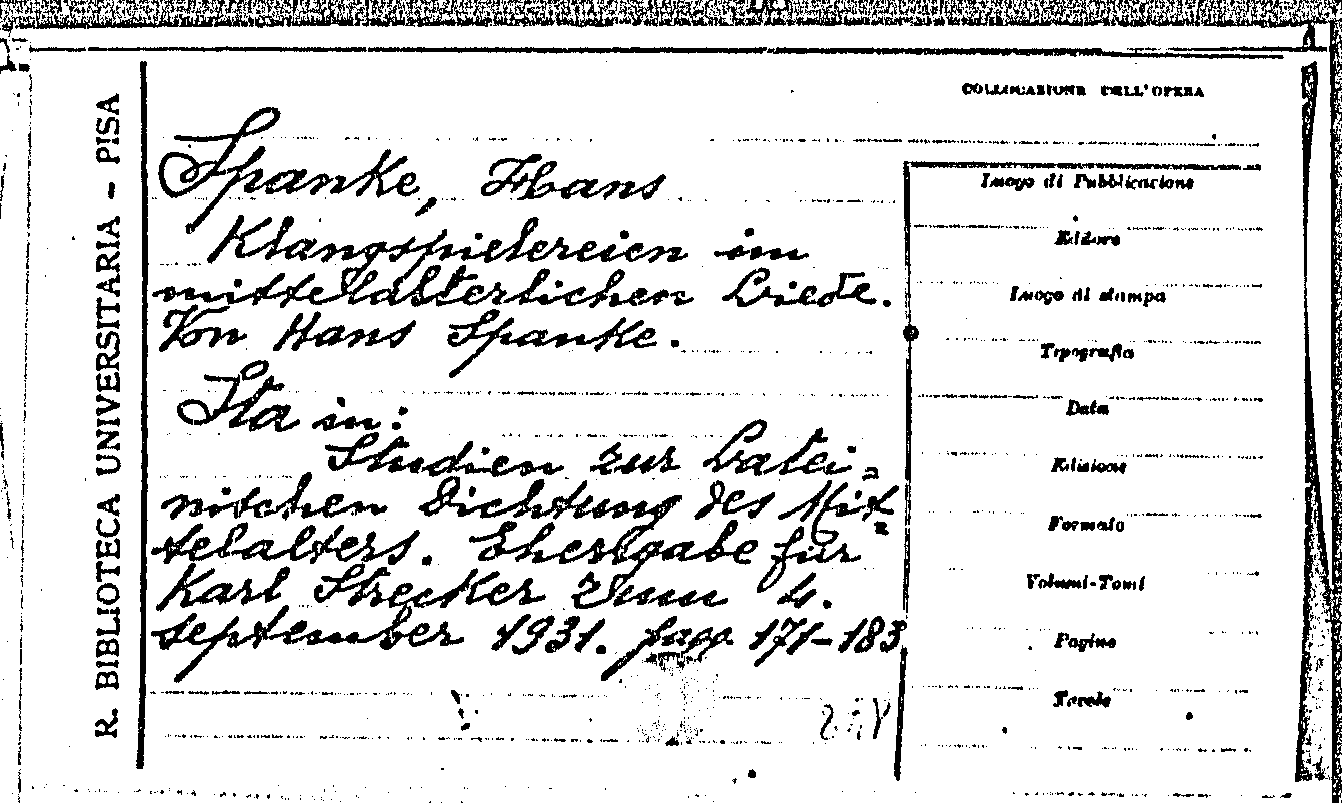 R. BIBLIOTECA UNIVERSITARIA – PISA
COLLOCAZIONE DELL'OPERA
Spanke, Hans
Klangspielereien im
mittelalterlichen Liede.
Von Hans Spanke.
Sta in:
Studien zur Latei=
nischen Dichtung des Mit=
telalters. Ehrengabe für
Karl Strecker Zum 4.
september 1931. pagg. 171-183.
Luogo di Pubblicazione
Editore
Luogo di stampa
Tipografia
Data
Edizione
Formato
Volumi-Tomi
Pagine
Tavole